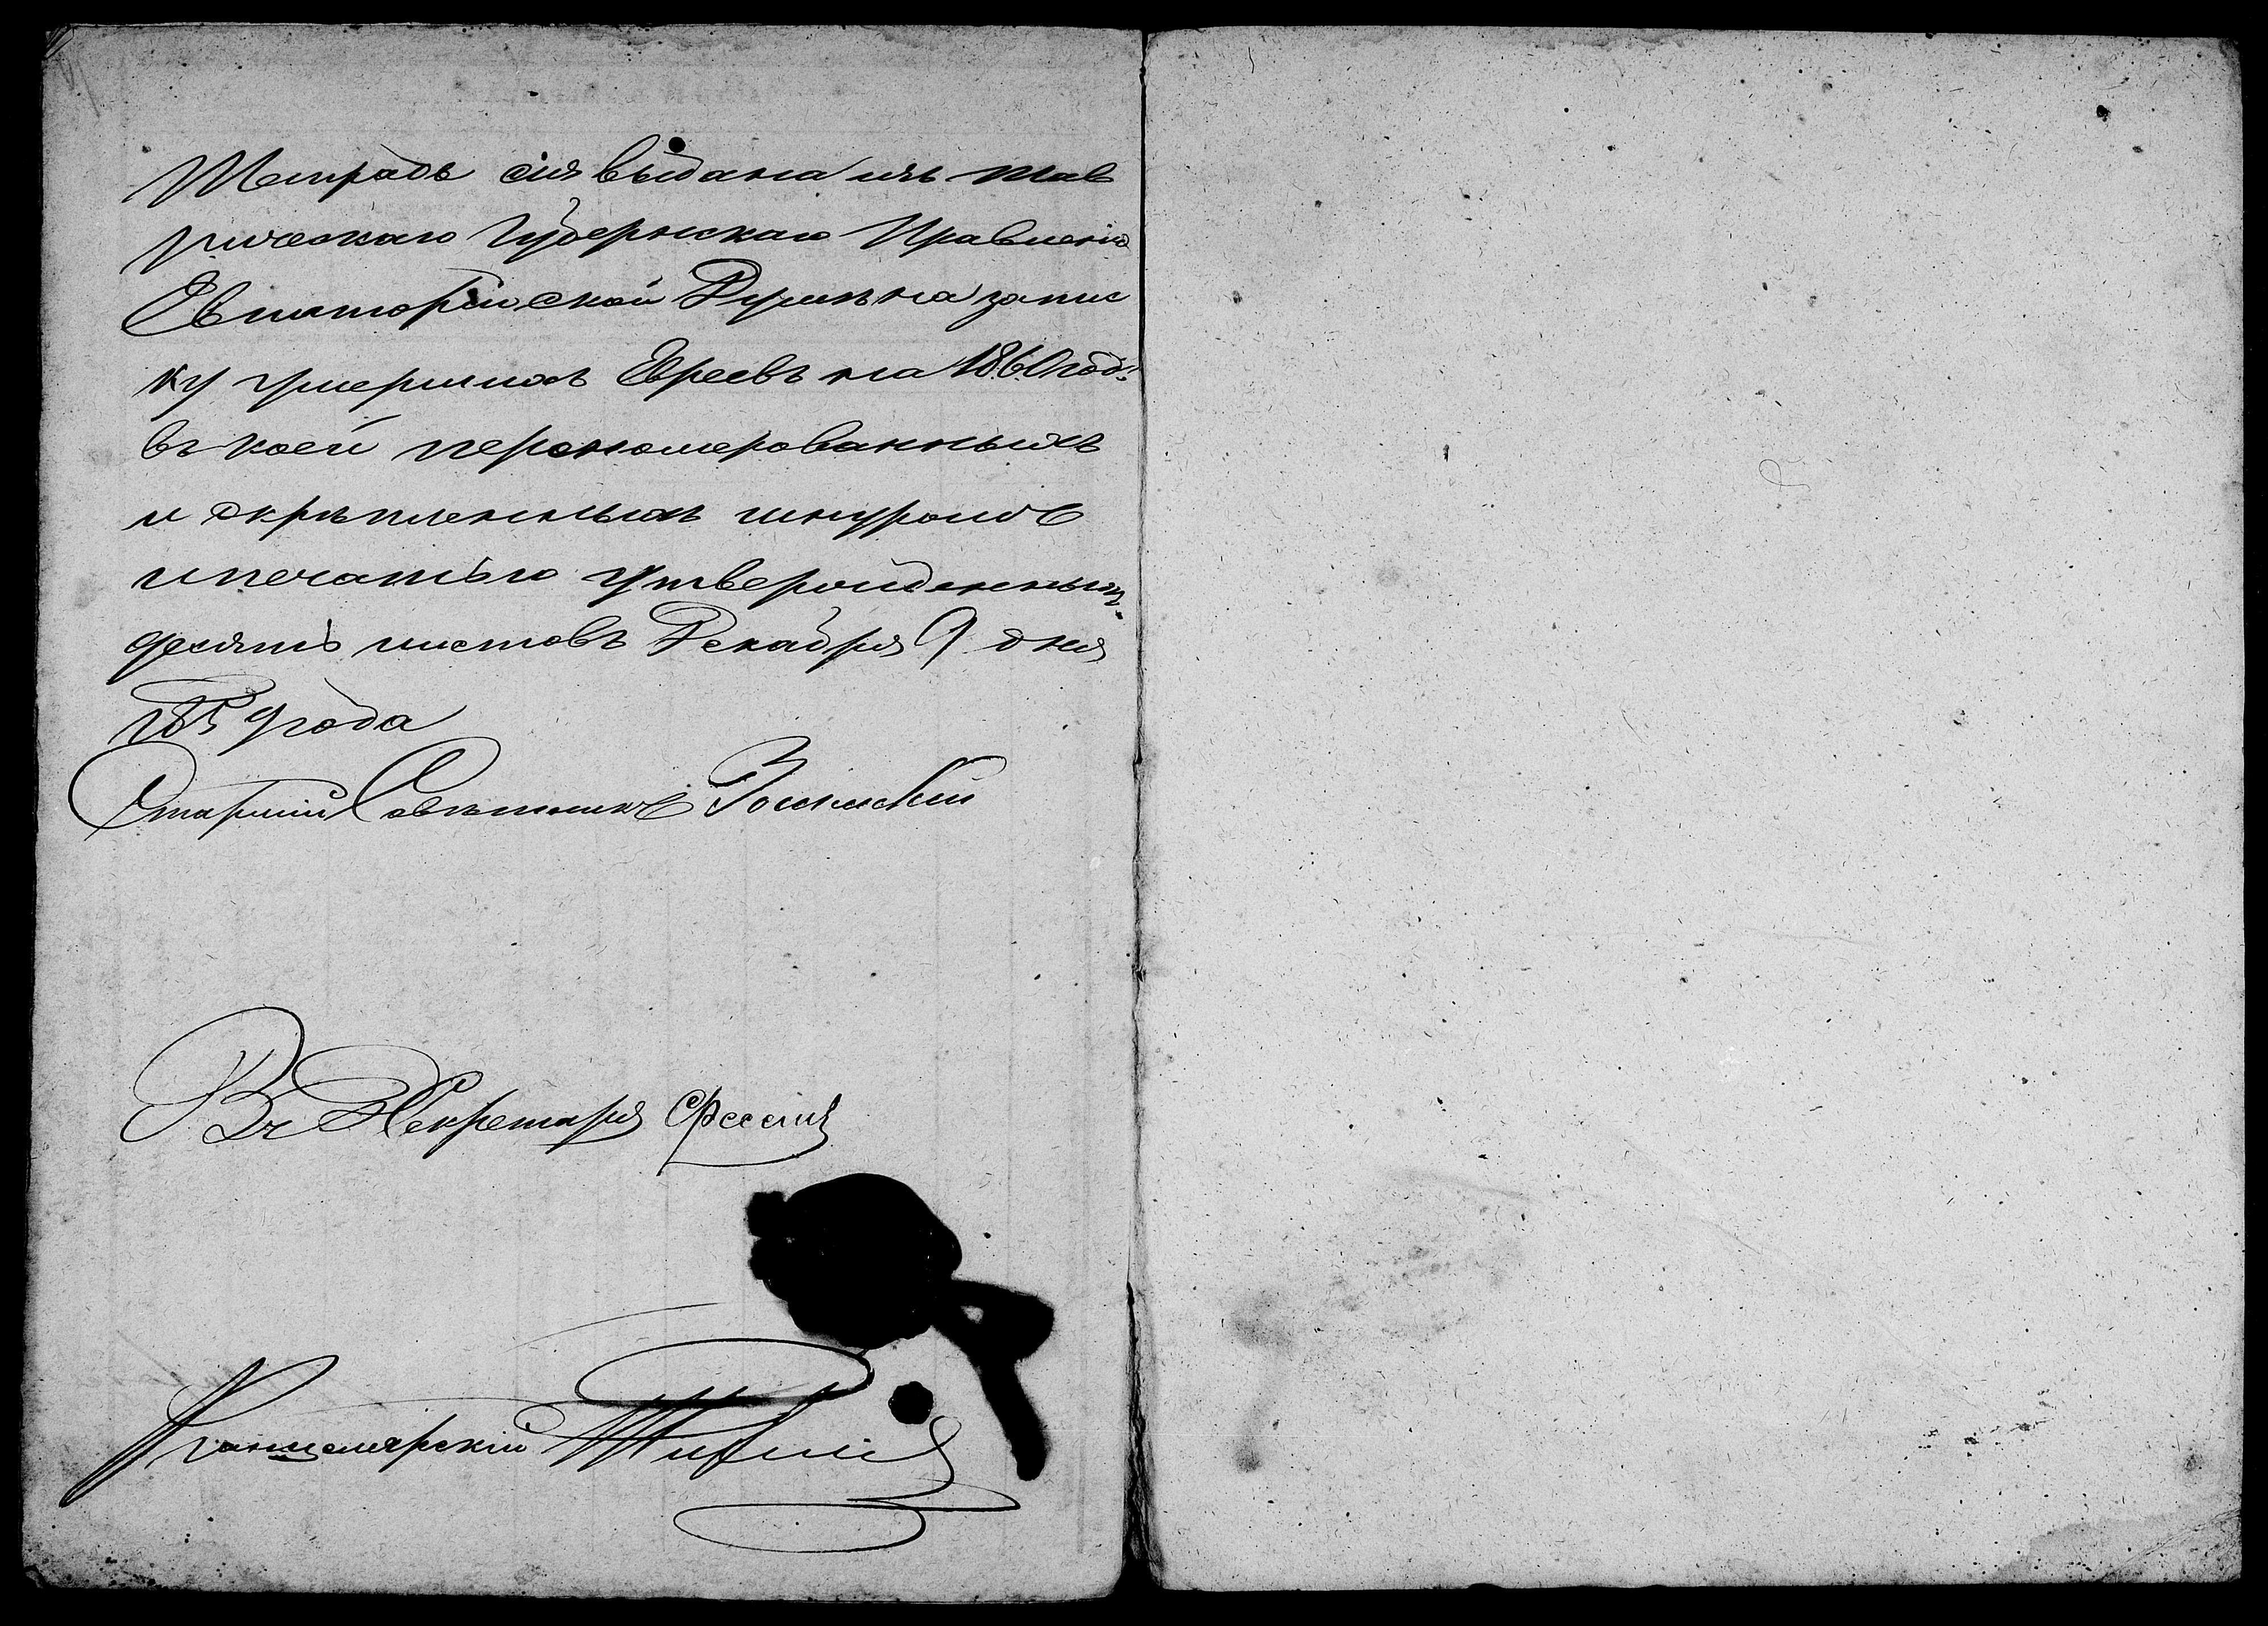 Тетрадь сія выдана изъ Тав
рическаго Губернскаго Правленія
Евпаторійской Думѣ на запис
ку умершихъ Евреевъ на 1860 годъ
въ коей перенумерованныхъ
и скрѣпленныхъ шнуромъ
и печатью утвержденныхъ
десять листовъ Декабря 9 дня
1859 года
Старшій Совѣтникъ
Секретаря
Канцелярскій